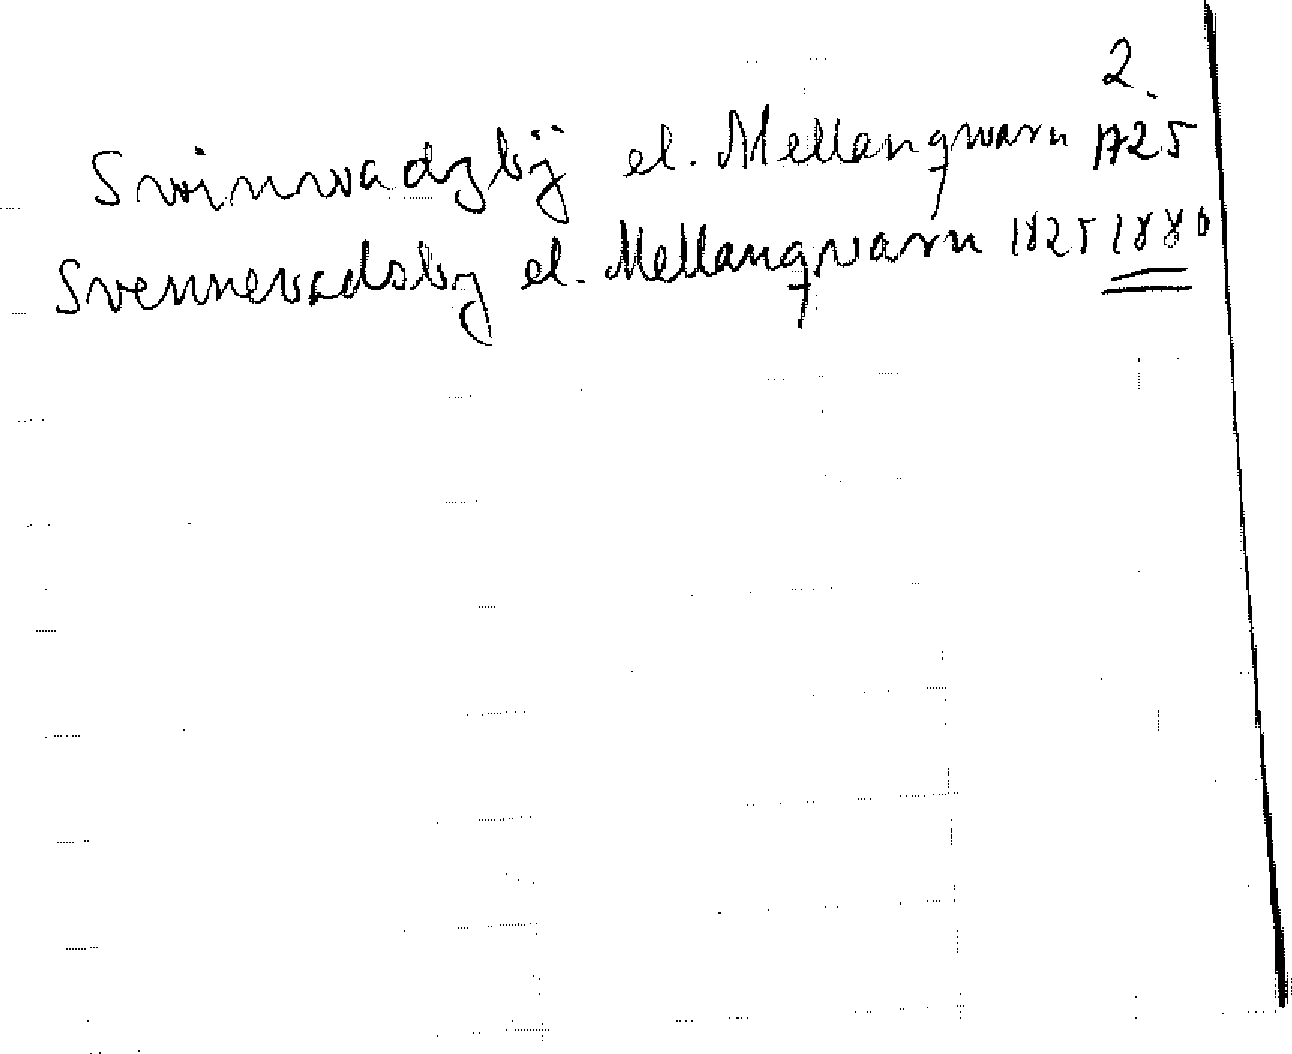 2.
Svinvadzbÿ el. Mellangwarn 1725
Svennevadsby el. Mellangqvarn 1825 1880